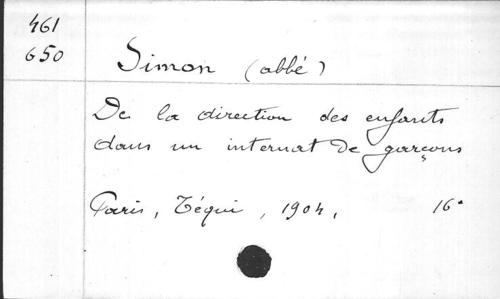 461
650
Simon (abbé)
De la direction des enfants
dans un internat de garçons
Paris, Téqui, 1904, 16°